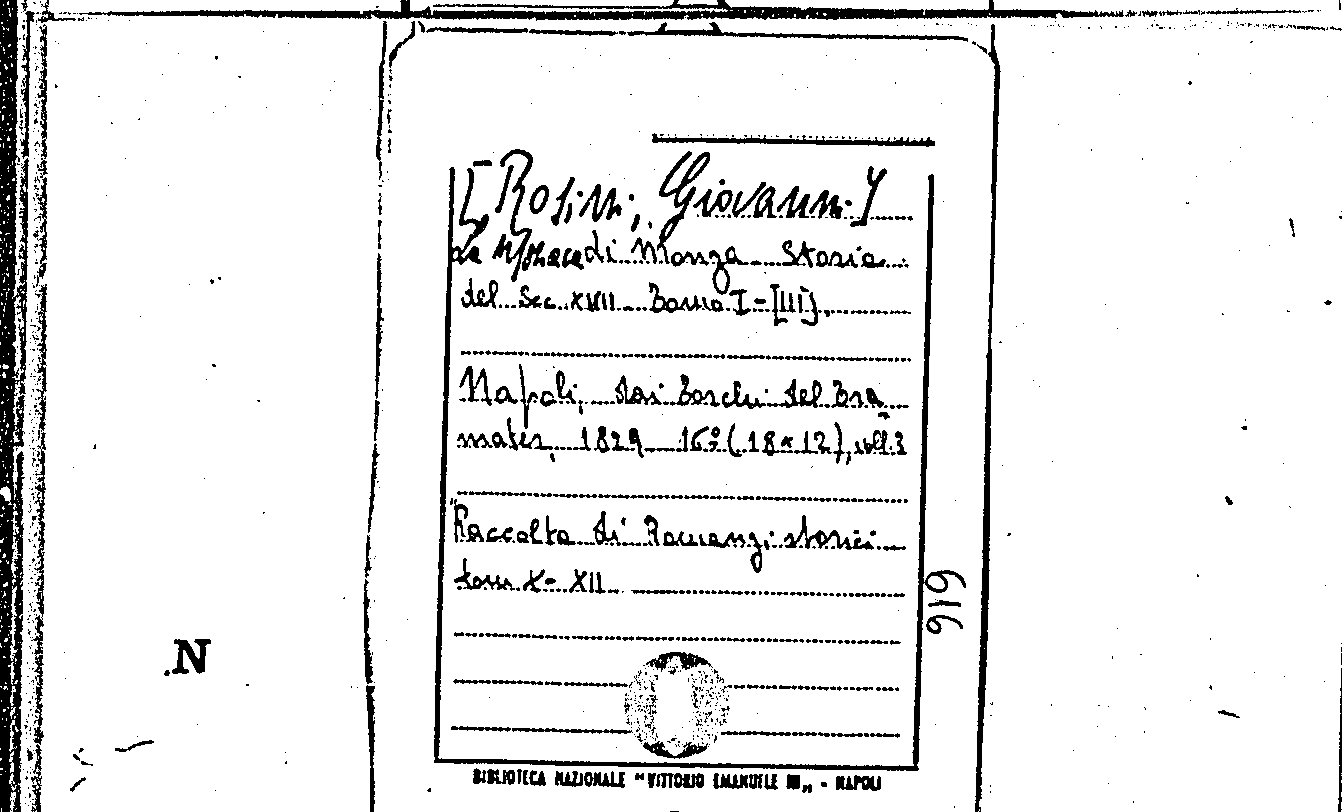 [Rosini, Giovanni]
La Monaca di Monza. Storia
del Sec. XVII. Tomo I-[III].
Napoli, dai Torchi del Tra_
mater, 1829 16º (18×12), voll. 3
Raccolta di Romanzi storici
tomi X- XII
616
N
BIBLIOTECA NAZIONALE "VITTORIO EMANUELE III„ - NAPOLI